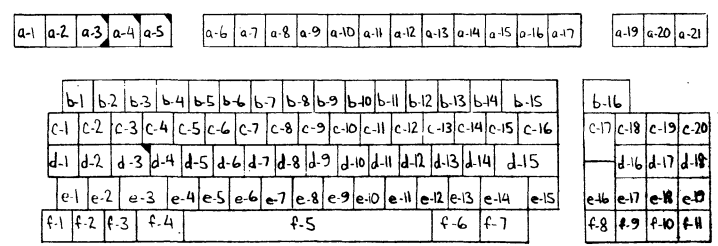 a-1 a-2 a-3 a-4 a-5 a-6 a-7 a-8 a-9 a-10 a-11 a-12 a-13 a-14 a-15 a-16 a-17 a-19 a-20 a-21
b-1 b-2 b-3 b-4 b-5 b-6 b-7 b-8 b-9 b-10 b-11 b-12 b-13 b-14 b-15 b-16
c-1 c-2 c-3 c-4 c-5 c-6 c-7 c-8 c-9 c-10 c-11 c-12 c-13 c-14 c-15 c-16 c-17 c-18 c-19 c-20
d-1 d-2 d-3 d-4 d-5 d-6 d-7 d-8 d-9 d-10 d-11 d-12 d-13 d-14 d-15 d-16 d-17 d-18
e-1 e-2 e-3 e-4 e-5 e-6 e-7 e-8 e-9 e-10 e-11 e-12 e-13 e-14 e-15 e-16 e-17 e-18 e-19
f-1 f-2 f-3 f-4 f-5 f-6 f-7 f-8 f-9 f-10 f-11